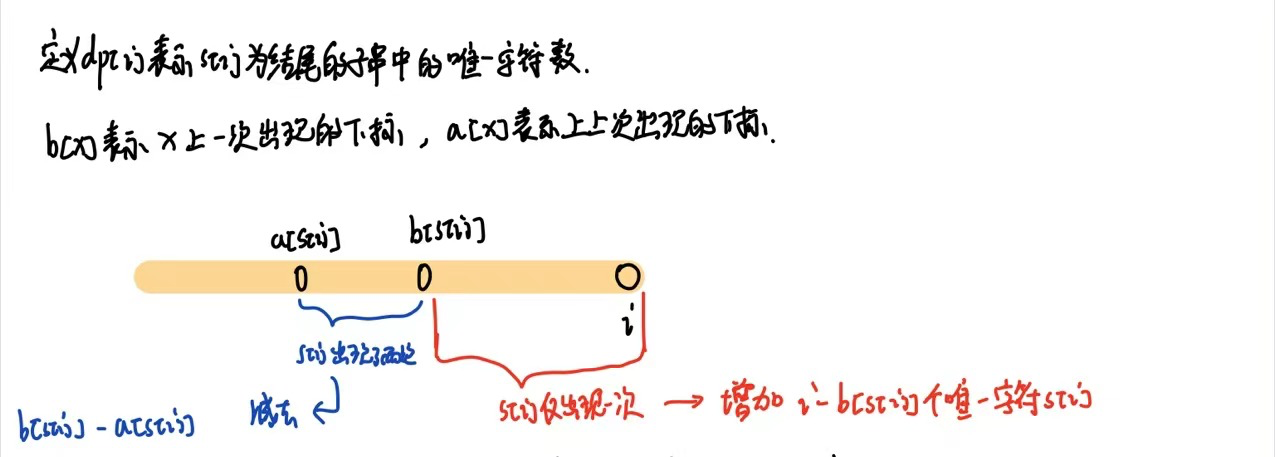 定义dp[i]表示s[i]为结尾的子串中的唯一字符数.
b[x]表示x上一次出现的下标, a[x]表示上上次出现的下标.
a[s[i]] b[s[i]]
i
s[i]出现了两次
减去 s[i]仅出现一次 → 增加 i-b[s[i]]个唯一字符s[i]
b[s[i]] - a[s[i]]